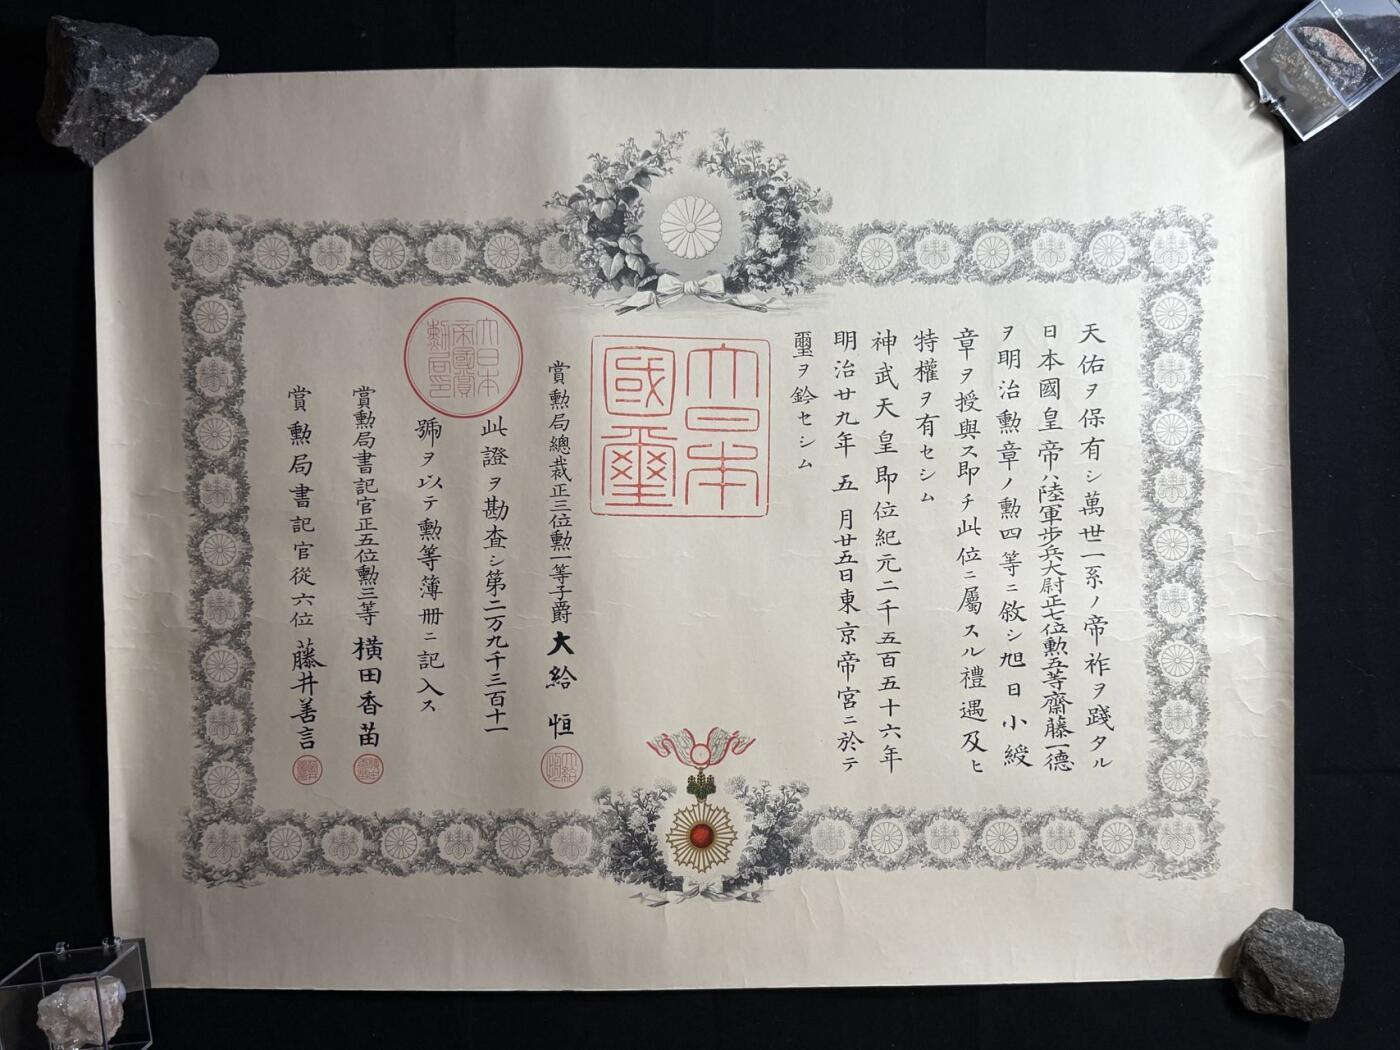 天佑ヲ保有シ萬世一系ノ帝祚ヲ踐タル
日本國皇帝ハ陸軍歩兵大尉正七位勲五等齋藤一德
ヲ明治勲章ノ勲四等ニ敘シ旭日小綬
章ヲ授與ス即チ此位ニ屬スル禮遇及ヒ
特權ヲ有セシム
神武天皇即位紀元二千五百五十六年
明治廿九年五月廿五日東京帝宮ニ於テ
璽ヲ鈐セシム
大日本
國璽
賞勲局總裁正三位勲一等子爵大給恒
此證ヲ勘査シ第二万九千三百十一
號ヲ以テ勲等簿冊ニ記入ス
大日本
帝國賞
勲局印
賞勲局書記官正五位勲三等横田香苗
賞勲局書記官從六位藤井善言